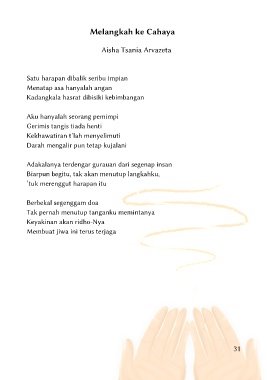 Melangkah ke Cahaya
Aisha Tsania Arvazeta
Satu harapan dibalik seribu impian
Menatap asa hanyalah angan
Kadangkala hasrat dibisiki kebimbangan
Aku hanyalah seorang pemimpi
Gerimis tangis tiada henti
Kekhawatiran t'lah menyelimuti
Darah mengalir pun tetap kujalani
Adakalanya terdengar gurauan dari segenap insan
Biarpun begitu, tak akan menutup langkahku,
'tuk merenggut harapan itu
Berbekal segenggam doa
Tak pernah menutup tanganku memintanya
Keyakinan akan ridho-Nya
Membuat jiwa ini terus terjaga
31